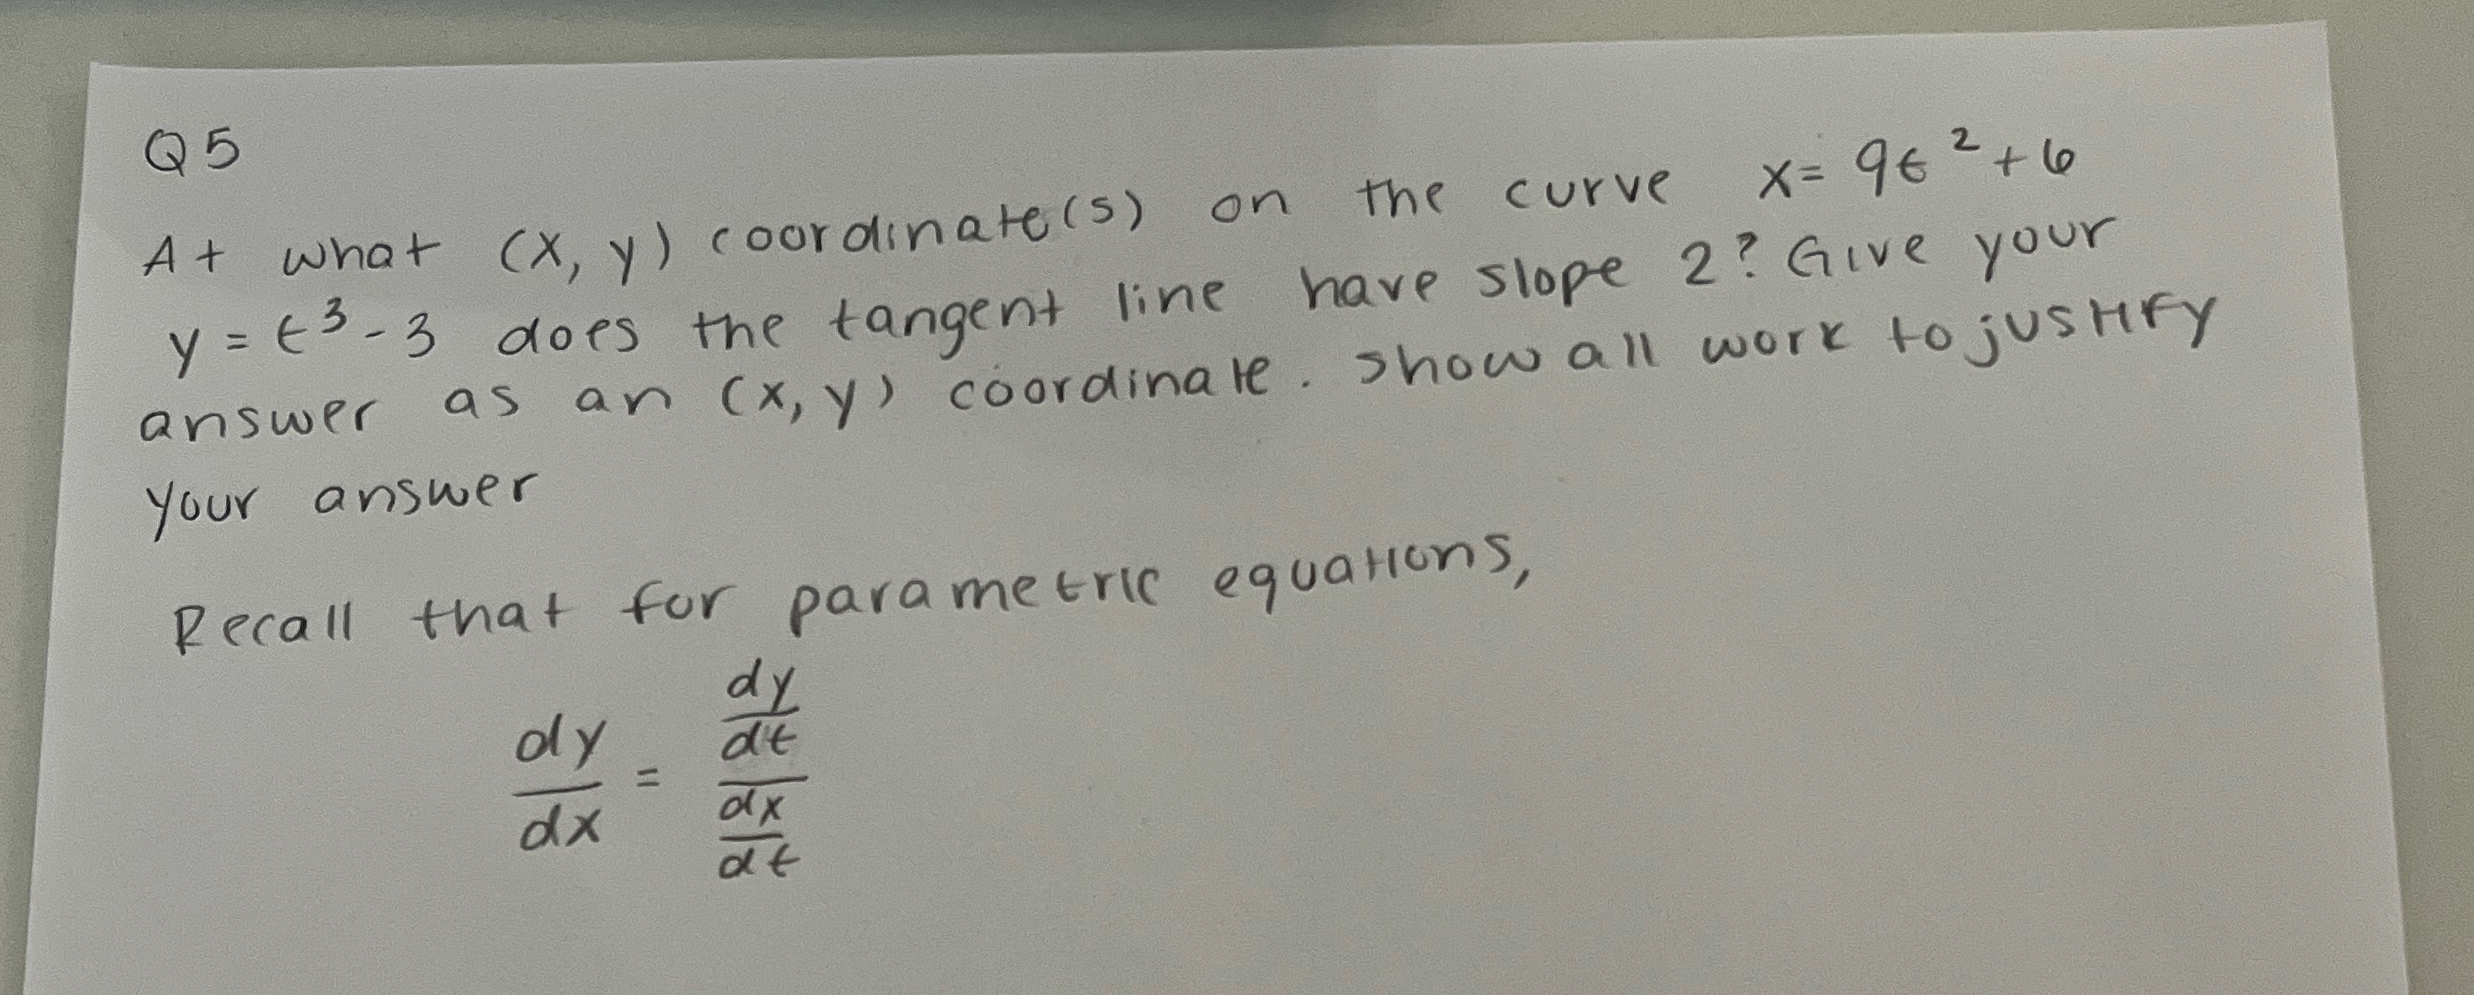 Q5
At what (x, y) coordinate(s) on the curve x = 9t² + 6
y = t³ - 3 does the tangent line have slope 2? Give your
answer as an (x, y) coordinate. Show all work to justify
your answer
Recall that for parametric equations,
dy/dx = (dy/dt)/(dx/dt)